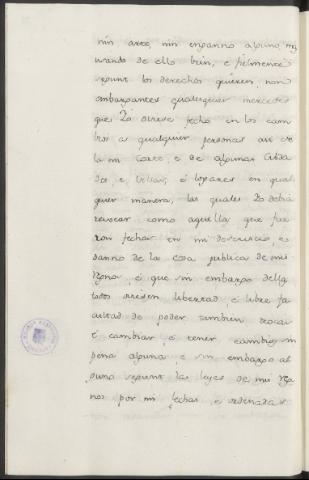 nin arte, nin enganno alguno, m
urando de ello bien, e fielmente
segunt los derechos quieren, non
embargantes qualesquier mercedes
que Io oviese fecho en los cam
bios a qualquier personas asi en
la mi Corte, e de algunas Cibda
des, e Villas, e logares en qual
quier manera, las quales Io debia
revocar como aquella que fue
ron fechas en mi deservicio, e
danno de la cosa publica de mis
Regnos, e que sin embargo della
todos oviesen libertad, e libre fa
cultad de poder tambien trocar
e cambiar, e tener cambios sin
pena alguna e sin embargo al
guno segunt las leyes de mis Reg
nos por mi fechas, e ordenadas